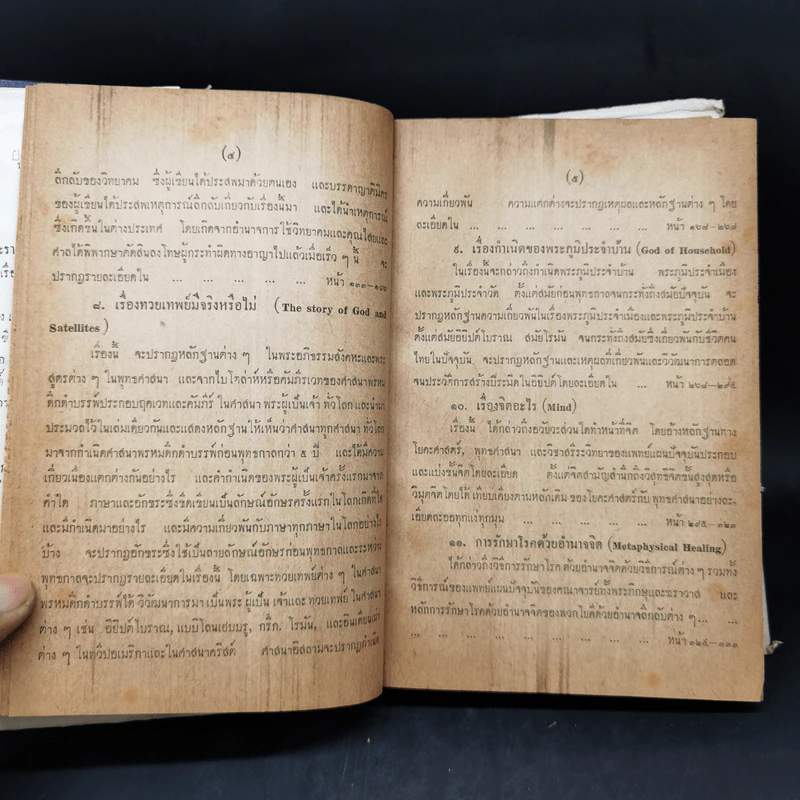 (๔)
ลึกลับของวิทยาคม ซึ่งผู้เขียนได้ประสพมาด้วยตนเอง และบรรดาญาติมิตร
ของผู้เขียนได้ประสพเหตุการณ์ลึกลับเกี่ยวกับเรื่องนี้มา และได้นำเหตุการณ์
ซึ่งเกิดขึ้นในต่างประเทศ โดยเกิดจากอำนาจการใช้วิทยาคมและคุณไสยและ
ศาลได้พิพากษาตัดสินลงโทษผู้กระทำผิดทางอาญาไปแล้วเมื่อเร็ว ๆ นี้ จะ
ปรากฏรายละเอียดใน ... ... ... ... ... หน้า
๘. เรื่องทวยเทพย์มีจริงหรือไม่ (The story of God and
Satellites)
เรื่องนี้ จะปรากฏหลักฐานต่าง ๆ ในพระอภิธรรมสังคหะและพระ
สูตรต่าง ๆ ในพุทธศาสนา และจากไบโคล่าห์หรือคัมภีรเวทของศาสนาพรหม
ติกดำบรรพ์ประกอบฤคเวทและคัมภีร์ ในศาสนา พระผู้เป็นเจ้า ทั่วโลก และนำมา
ประมวลไว้ในเล่มเดียวกันและแสดงหลักฐานให้เห็นว่าศาสนาทุกศาสนา ทั่วโลก
มาจากกำเนิดศาสนาพรหมติกดำบรรพ์ก่อนพุทธกาลกว่า ๕ ปี และได้มีความ
เกี่ยวเนื่องแตกต่างกันอย่างไร และคำกำเนิดของพระผู้เป็นเจ้าครั้งแรกมาจาก
คำใด ภาษาและอักขระซึ่งขีดเขียนเป็นลักษณ์อักษรครั้งแรกในโลกเกิดที่ใด
และมีกำเนิดมาอย่างไร และมีความเกี่ยวพันกับภาษาทุกภาษาในโลกอย่างไร
บ้าง จะปรากฏอักขระซึ่งใช้เป็นลายลักษณ์อักษรก่อนพุทธกาลและระหว่าง
พุทธกาลจะปรากฏรายละเอียดในเรื่องนี้ โดยเฉพาะทวยเทพย์ต่าง ๆ ในศาสนา
พรหมติกดำบรรพ์ได้ วิวัฒนาการมา เป็นพระ ผู้เป็น เจ้าและ ทวยเทพย์ ในศาสนา
ต่าง ๆ เช่น อียิปต์โบราณ, แบบิโลนเฮบบรู, กรีก, โรมัน, และอินเดียนแดง
ต่าง ๆ ในทวีปอเมริกาและในศาสนาคริสต์ ศาสนาอิสลามจะปรากฏกำเนิด
(๕)
ความเกี่ยวพัน ความแตกต่างจะปรากฏเหตุผลและหลักฐานต่าง ๆ โดย
ละเอียดใน ... ... ... ... ... ... หน้า ๑๖๗—๒๖๗
๙. เรื่องกำเนิดของพระภูมิประจำบ้าน (God of Household)
ในเรื่องนี้จะกล่าวถึงกำเนิดพระภูมิประจำบ้าน พระภูมิประจำเมือง
และพระภูมิประจำวัด ตั้งแต่สมัยก่อนพุทธกาลจนกระทั่งถึงสมัยปัจจุบัน จะ
ปรากฏหลักฐานความเกี่ยวพันในเรื่องพระภูมิประจำเมืองและพระภูมิประจำบ้าน
ตั้งแต่สมัยอียิปต์โบราณ สมัยโรมัน จนกระทั่งถึงสมัยซึ่งเกี่ยวพันกับชีวิตคน
ไทยในปัจจุบัน จะปรากฏหลักฐานและเหตุผลที่เกี่ยวพันและวิวัฒนาการตลอด
จนประวัติการสร้างปีระมิดในอียิปต์โดยละเอียดใน ... หน้า ๒๖๘—๒๙๕
๑๐. เรื่องจิตอะไร (Mind)
เรื่องนี้ ได้กล่าวถึงอวัยวะส่วนใดทำหน้าที่จิต โดยอ้างหลักฐานทาง
โยคะศาสตร์, พุทธศาสนา และวิชาสรีระวิทยาของแพทย์แผนปัจจุบันประกอบ
และแบ่งชั้นจิตโดยละเอียด ตั้งแต่จิตสามัญสำนึกถึงวิสุทธิจิตชั้นสูงสุดหรือ
วิมุตจิตโดยได้ เทียบเคียงตามหลักเดิม ของโยคะศาสตร์กับ พุทธศาสนาอย่างละ-
เอียดละออทุกแง่ทุกมุม ... ... ... ... ... หน้า ๒๙๕—๓๒๓
๑๑. การรักษาโรคด้วยอำนาจจิต (Metaphysical Healing)
ได้กล่าวถึงวิธีการรักษาโรค ด้วยอำนาจจิตด้วยวิธีการณ์ต่าง ๆ รวมทั้ง
วิธีการณ์ของแพทย์แผนปัจจุบันของคณาจารย์ทั้งพระภิกษุและฆราวาส และ
หลักการรักษาโรคด้วยอำนาจจิตของพวกโยคีด้วยอำนาจลึกลับต่าง ๆ ... ...
... ... ... ... ... ... ... หน้า ๓๒๔—๓๓๓